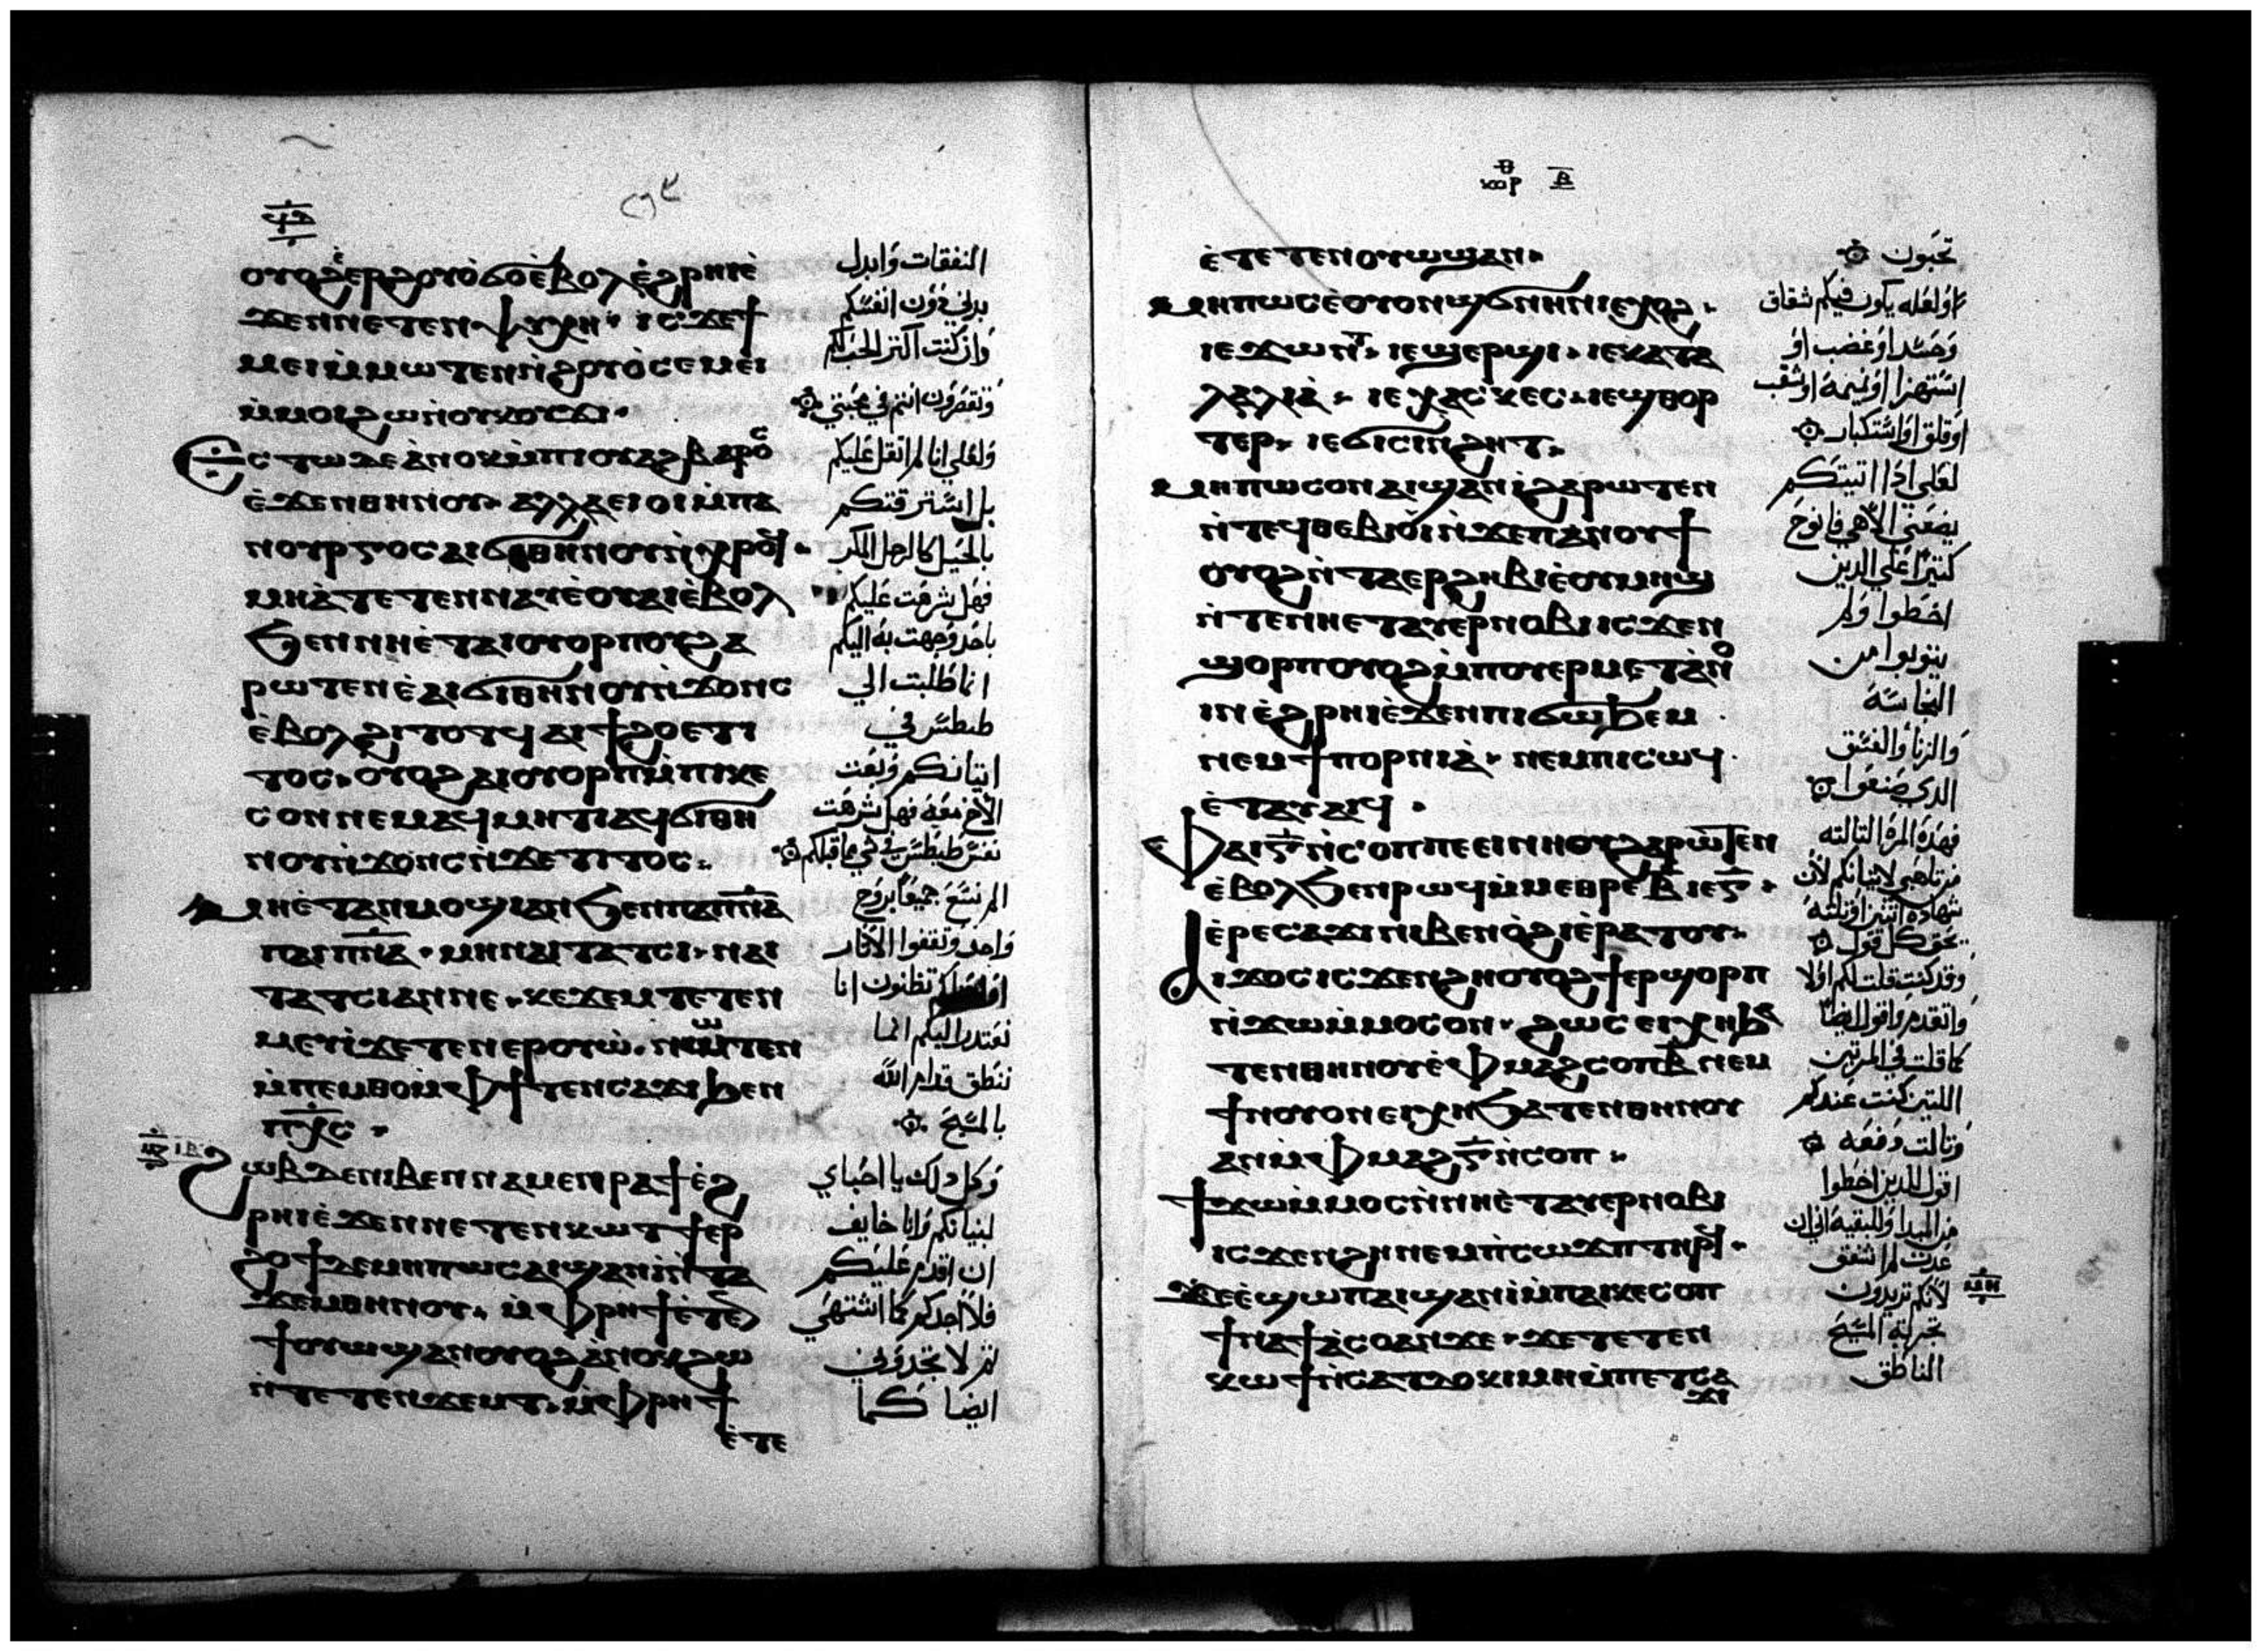 ϥⲑ
ⲟⲩⲟϩ ⲉⲣϩⲟⲩⲟ ϭⲟ ⲉⲃⲟⲗ ⲉϩⲣⲏⲓ ⲉ
ϫⲉⲛ ⲛⲉⲧⲉⲛⲯⲩⲭⲏ ⲓⲥϫⲉ ϯ
ⲙⲉⲓ ⲙⲙⲱⲧⲉⲛ ⲛϩⲟⲩⲟ ⲥⲉⲙⲉⲓ
ⲙⲙⲟⲓ ϩⲱ ⲛⲟⲩⲕⲟⲩϫⲓ
ⲉⲥⲧⲱ ⲇⲉ ⲁⲛⲟⲕ ⲙⲡⲓⲟⲩⲁϩⲃⲁⲣⲟⲥ
ⲉϫⲉⲛ ⲑⲏⲛⲟⲩ ⲁⲗⲗⲁ ⲉⲓⲟⲓ ⲙⲡⲁ
ⲛⲟⲩⲣⲅⲟⲥ ⲁⲓϭⲓ ⲑⲏⲛⲟⲩ ⲛⲭⲣⲟϥ
ⲙⲏ ⲁⲧⲉⲧⲉⲛⲛⲁⲩ ⲉⲟⲩⲁⲓ ⲉⲃⲟⲗ
ϧⲉⲛ ⲛⲏ ⲉⲧⲁⲓⲟⲩⲟⲣⲡⲟⲩ ϩⲁ
ⲣⲱⲧⲉⲛ ⲉⲁⲓϭⲓ ⲑⲏⲛⲟⲩ ⲛϫⲟⲛⲥ
ⲉⲃⲟⲗ ϩⲓⲧⲟⲧϥ ⲁⲓϯϩⲟ ⲉⲧⲓ
ⲧⲟⲥ ⲟⲩⲟϩ ⲁⲓⲟⲩⲟⲣⲡ ⲙⲡⲓⲕⲉ
ⲥⲟⲛ ⲛⲉⲙⲁϥ ⲙⲏⲧⲓ ⲁϥϭⲓ ⲑⲏ
ⲛⲟⲩ ⲛϫⲟⲛⲥ ⲛϫⲉ ⲧⲓⲧⲟⲥ
ⲙⲏ ⲉⲧⲁⲛⲙⲟϣⲓ ⲁⲛ ϧⲉⲛ ⲡⲁⲓⲡⲛⲁ
ⲡⲁⲓⲡⲛⲁ ⲙⲏ ⲛⲁⲓⲧⲁⲧⲥⲓ ⲛⲁⲓ
ⲧⲁⲧⲥⲓ ⲁⲛ ⲛⲉ ⲕⲉϫⲉⲙ ⲧⲉⲧⲉⲛ
ⲙⲉⲩⲓ ϫⲉ ⲧⲉⲛⲉⲣⲟⲩⲱ ⲛⲱⲧⲉⲛ
ⲙⲡⲉⲙⲑⲟ ⲙⲫϯ ⲧⲉⲛⲥⲁϫⲓ ϧⲉⲛ
ⲡⲭⲥ
ϩⲱⲃ ⲇⲉ ⲛⲓⲃⲉⲛ ⲛⲁⲙⲉⲛⲣⲁϯ ⲉϩ
ⲣⲏⲓ ⲉϫⲉⲛ ⲛⲉⲧⲉⲛⲕⲱⲧ ϯⲉⲣ
ϩⲟϯ ⲇⲉ ⲙⲏⲡⲱⲥ ⲁⲓϣⲁⲛⲓ ⲛⲧⲁ
ϫⲉⲙ ⲑⲏⲛⲟⲩ ⲙⲫⲣⲏϯ ⲉⲧⲉ
ϯⲟⲩⲱϣ ⲁⲛ ⲟⲩⲟϩ ⲁⲛⲟⲕ ϩⲱ
ⲛⲧⲉⲧⲉⲛϫⲉⲙⲧ ⲙⲫⲣⲏϯ
ⲉⲧⲉ
النفقات وابدل
بدني دون انفسكم
وان كنت اكتر الحب لكم
وتقصرون انتم في محبتي
ولعلي انا لم اثقل عليكم
بل استرقتكم
بالحيل كالرجل المكر
فهل شرهت عليكم
باحد وجهت به اليكم
انما طلبت الي
طيطس في
اتيانكم وبعت
الاخ معه فهل شرهت
نفس طيطس في شي مما قبلكم
الم نسع جميعا بروح
واحد وتقفوا الاثار
تظنون انا
نعتدر اليكم انما
ننطق قدام الله
بالمسيح
وكل دلك يا احباي
لبنيانكم وانا خايف
ان اقدم عليكم
فلا اجدكم كما اشتهي
تم لا تجدوني
ايضا كما
ⲉⲧⲉⲧⲉⲛⲟⲩⲱϣ ⲁⲛ
ⲙⲏⲡⲱⲥ ⲉⲟⲩⲟⲛ ϣϭⲛⲏⲛ ⲓⲉ ⲭⲟϩ
ⲓⲉ ϫⲱⲛⲧ ⲓⲉ ϣⲉⲣϣⲓ ⲓⲉ ⲕⲁⲧⲁ
ⲗⲁⲗⲓⲁ ⲓⲉ ⲭⲁⲥⲕⲉⲥ ⲓⲉ ϣⲑⲟⲣ
ⲧⲉⲣ ⲓⲉ ϭⲓⲥⲓ ⲛϩⲏⲧ
ⲙⲏⲡⲱⲥ ⲟⲛ ⲁⲓϣⲁⲛⲓ ϩⲁⲣⲱⲧⲉⲛ
ⲛⲧⲉϥⲑⲉⲃⲓⲟⲓ ⲛϫⲉ ⲡⲁⲛⲟⲩϯ
ⲟⲩⲟϩ ⲛⲧⲁⲉⲣϩⲏⲃⲓ ⲉⲟⲩⲙⲏϣ
ⲛⲧⲉ ⲛⲏ ⲉⲧⲁⲩⲉⲣⲛⲟⲃⲓ ⲓⲥϫⲉⲛ
ϣⲟⲣⲡ ⲟⲩⲟϩ ⲙⲡⲟⲩⲉⲣⲙⲉⲧⲁⲛⲟ
ⲓⲛ ⲉϩⲣⲏⲓ ⲉϫⲉⲛ ⲡⲓϭⲱϧⲉⲙ
ⲛⲉⲙ ϯⲡⲟⲣⲛⲓⲁ ⲛⲉⲙ ⲡⲓⲥⲱϥ
ⲉⲧⲁⲩⲁⲓϥ
ⲫⲁⲓ ⲅ ⲛⲥⲟⲡ ⲡⲉ ⲉⲓⲛⲏⲟⲩ ϩⲁⲣⲱⲧⲉⲛ
ⲉⲃⲟⲗ ϧⲉⲛ ⲣⲱϥ ⲙⲙⲉⲑⲣⲉ ⲃ ⲓⲉ ⲅ
ⲉⲣⲉ ⲥⲁϫⲓ ⲛⲓⲃⲉⲛ ⲟϩⲓ ⲉⲣⲁⲧⲟⲩ
ⲁⲓϫⲟⲥ ⲓⲥϫⲉⲛ ϩⲏ ⲟⲩⲟϩ ϯⲉⲣϣⲟⲣⲡ
ⲛϫⲱ ⲙⲙⲟⲥ ⲟⲛ ϩⲱⲥ ⲉⲓⲭⲏ ϧⲁ
ⲧⲉⲛ ⲑⲏⲛⲟⲩ ⲉⲫⲙⲁϩⲥⲟⲡ ⲃ ⲛⲉⲙ
ϯⲛⲟⲩ ⲟⲛ ⲉⲓⲭⲏ ϧⲁⲧⲉⲛ ⲑⲏⲛⲟⲩ
ⲁⲛ ⲙⲫⲙⲁϩ ⲅ ⲛⲥⲟⲡ
ϯϫⲱ ⲙⲙⲟⲥ ⲛⲛⲏ ⲉⲧⲁⲩⲉⲣⲛⲟⲃⲓ
ⲓⲥϫⲉⲛ ϩⲏ ⲛⲉⲙ ⲡⲥⲱϫⲡ ⲧⲏⲣϥ
ϫⲉ ⲉϣⲱⲡ ⲁⲓϣⲁⲛⲓ ⲙⲡⲁⲓⲕⲉⲥⲟⲡ
ϯⲛⲁϯⲁⲥⲟ ⲁⲛ ϫⲉ ϫⲉ ⲧⲉⲧⲉⲛ
ⲕⲱϯ ⲛⲥⲁ ⲧⲇⲟⲕⲓⲙⲏ ⲙⲡⲉⲧⲥⲁ
ϫⲓ
تحبون
او لعله يكون فيكم شقاق
وحسد او غضب او
استهزا او نميمه او شغب
او قلق او استكبار
لعلي ادا اتيتكم
يضعني الاهي فانوح
كتيرا علي الدين
اخطوا ولم
يتوبوا من
النجاسه
والزنا والفسق
الدي صنعوا
فهده المره التالته
من تاهبي لاتيانكم لان
شهاده اتنين او تلته
يحق كل قول
وقد كنت قلت لكم اولا
واتقدم واقول ايضا
كما قلت في المرتين
اللتين كنت عندكم
وتالت دفعه
اقول للدين اخطوا
من البدا وللبقيه اني ان
عدت لم اشفق
لانكم تريدون
تجربه المسيح
الناطق
ⲙⲏ